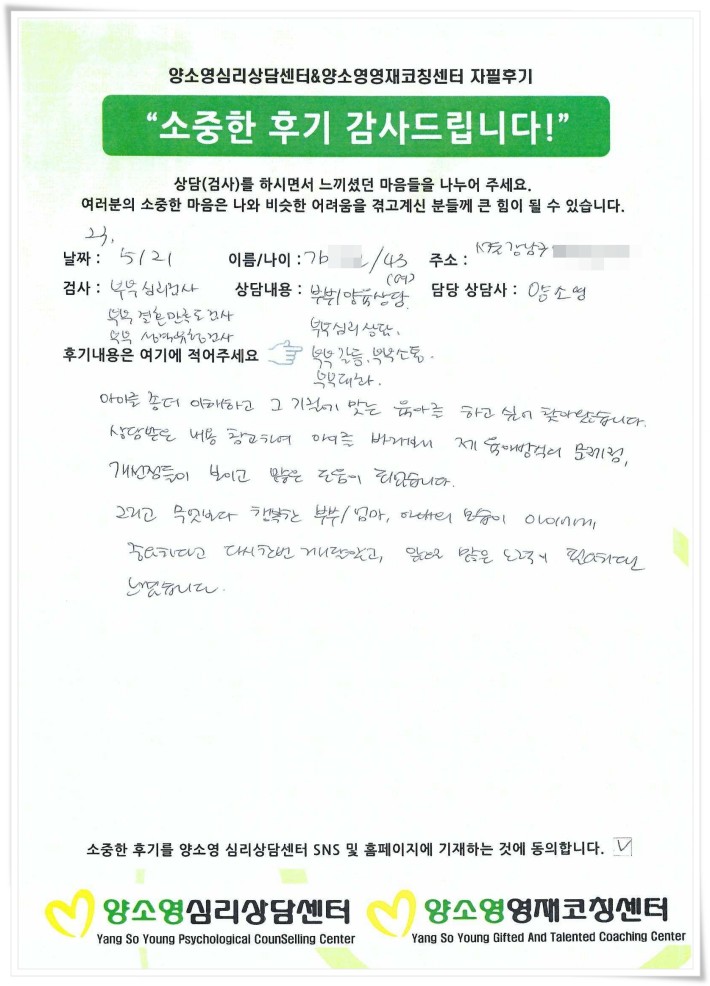 양소영심리상담센터&양소영영재코칭센터 자필후기
“소중한 후기 감사드립니다!”
상담(검사)를 하시면서 느끼셨던 마음들을 나누어 주세요.
여러분의 소중한 마음은 나와 비슷한 어려움을 겪고계신 분들께 큰 힘이 될 수 있습니다.
23.
날짜 : 5/21 이름/나이 : /43 (여) 주소 : 서울 강남구
검사 : 부부심리검사 상담내용 : 부부/양육상담. 담당 상담사 : 양소영
부부 결혼만족도검사 부부심리상담.
부부 검사
후기내용은 여기에 적어주세요 부부갈등, 부부소통.
부부대화.
아이를 좀더 이해하고 그 기질에 맞는 육아를 하고 싶어 찾아왔습니다.
상담받은 내용 참고하여 아이를 바라보니 제 육아방식의 문제점,
개선점들이 보이고 많은 도움이 되었습니다.
그리고 무엇보다 행복한 부부/엄마, 아빠의 모습이 아이에게
중요하다고 다시한번 깨달았고, 앞으로 많은 노력이 필요하다
느꼈습니다.
소중한 후기를 양소영 심리상담센터 SNS 및 홈페이지에 기재하는 것에 동의합니다. V
양소영심리상담센터 양소영영재코칭센터
Yang So Young Psychological CounSelling Center Yang So Young Gifted And Talented Coaching Center